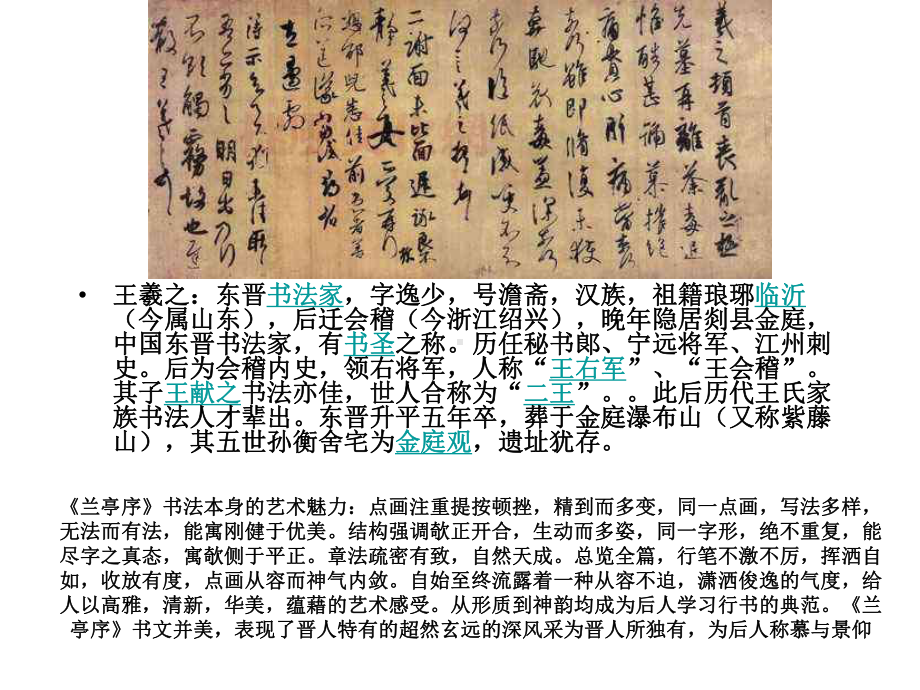 羲之頓首喪亂之極
先墓再離荼毒追
惟酷甚號慕摧絕
痛貫心肝痛當奈何
奈何雖即脩復未獲
奔馳哀毒益深奈何
奈何臨紙感哽不知
何言羲之頓首頓首
二謝面未比面遲詠良不
靜羲之女愛再拜
想邰兒悉佳前患者善
所送議當試尋省
左邊劇
得示知足下猶未佳耿
吾亦劣劣明日出乃行
不欲觸霧故也遲
散王羲之頓首
• 王羲之：东晋书法家，字逸少，号澹斋，汉族，祖籍琅琊临沂
（今属山东），后迁会稽（今浙江绍兴），晚年隐居剡县金庭，
中国东晋书法家，有书圣之称。历任秘书郎、宁远将军、江州刺
史。后为会稽内史，领右将军，人称“王右军”、“王会稽”。
其子王献之书法亦佳，世人合称为“二王”。。此后历代王氏家
族书法人才辈出。东晋升平五年卒，葬于金庭瀑布山（又称紫藤
山），其五世孙衡舍宅为金庭观，遗址犹存。
《兰亭序》书法本身的艺术魅力：点画注重提按顿挫，精到而多变，同一点画，写法多样，
无法而有法，能寓刚健于优美。结构强调欹正开合，生动而多姿，同一字形，绝不重复，能
尽字之真态，寓欹侧于平正。章法疏密有致，自然天成。总览全篇，行笔不激不厉，挥洒自
如，收放有度，点画从容而神气内敛。自始至终流露着一种从容不迫，潇洒俊逸的气度，给
人以高雅，清新，华美，蕴藉的艺术感受。从形质到神韵均成为后人学习行书的典范。《兰
亭序》书文并美，表现了晋人特有的超然玄远的深风采为晋人所独有，为后人称慕与景仰